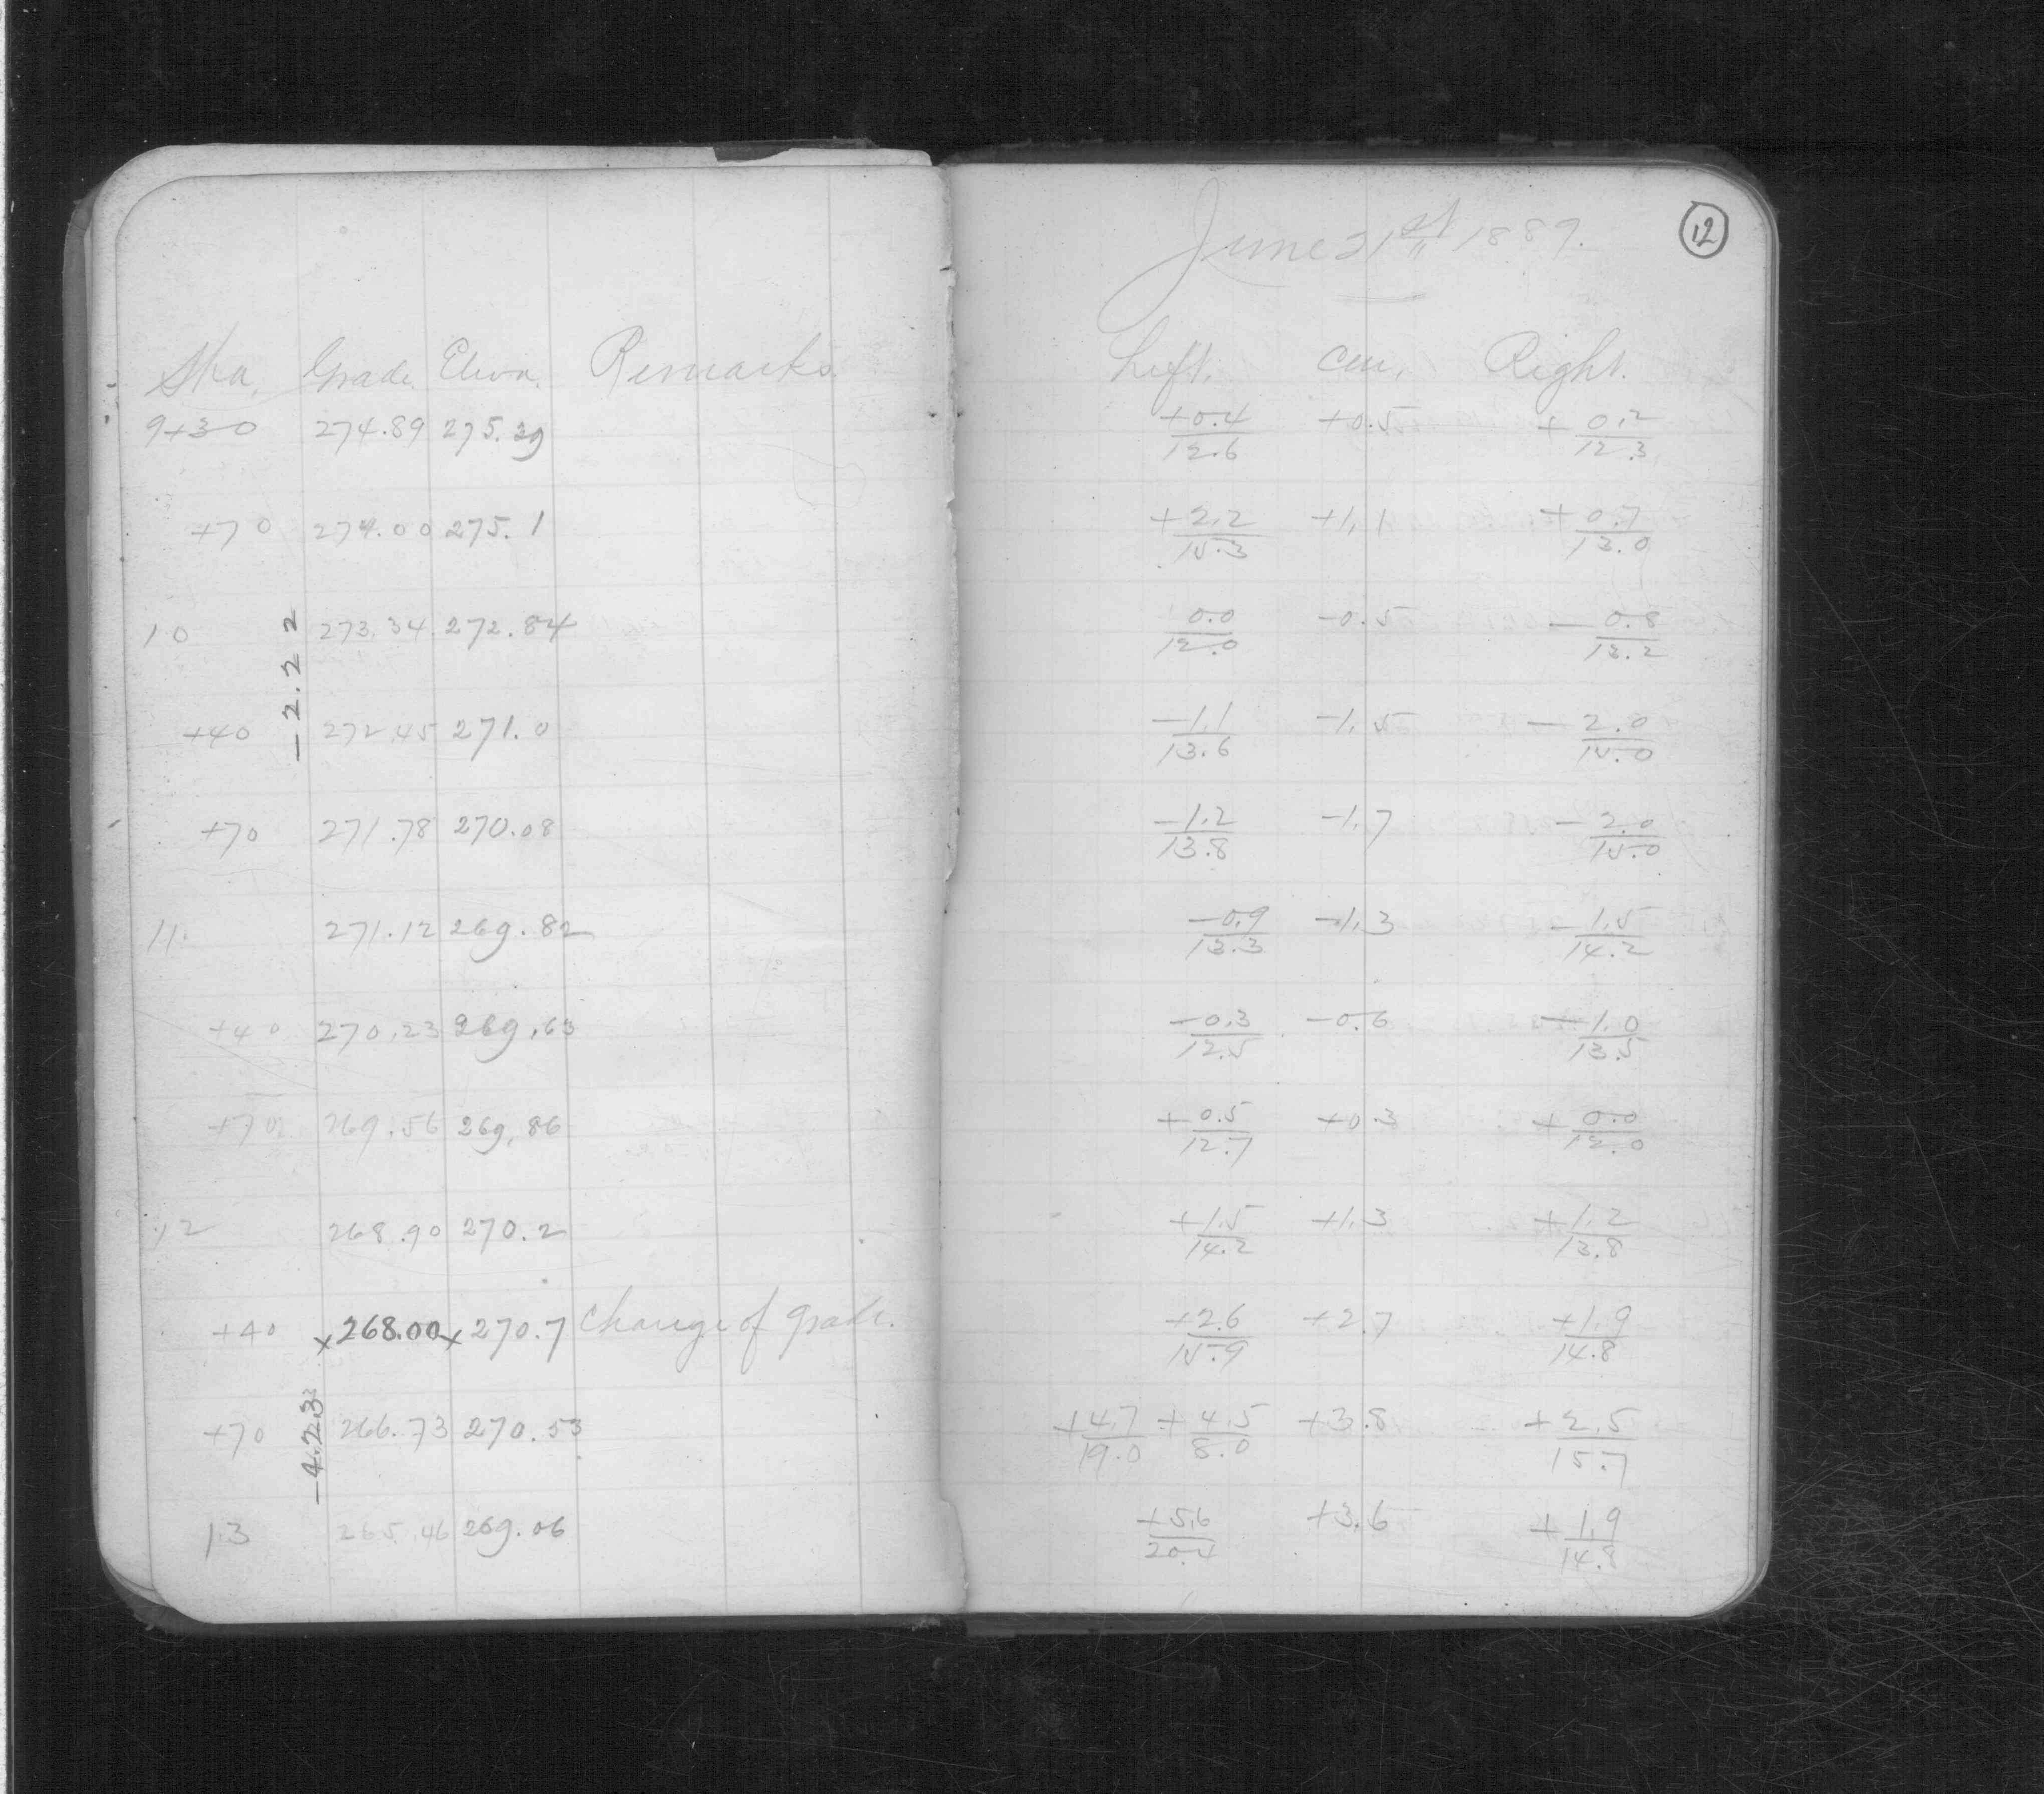 12
June 21st 1887.
Sta. Grade Elevn. Remarks. Left. Cen. Right.
9+30 274.89 275.39 +0.4/12.6 +0.5 +0.2/12.3
+70 274.00 275.1 +2.2/15.3 +1.1 +0.7/13.0
10 273.34 272.84 0.0/12.0 -0.5 -0.8/13.2
-2.22
+40 272.45 271.0 -1.1/13.6 -1.5 -2.0/15.0
+70 271.78 270.08 -1.2/13.8 -1.7 -2.0/15.0
11 271.12 269.82 -0.9/13.3 -1.3 -1.5/14.2
+40 270.23 269.63 -0.3/12.5 -0.6 -1.0/13.5
+70 269.56 269.86 +0.5/12.7 +0.3 +0.0/12.0
12 268.90 270.2 +1.5/14.2 +1.3 +1.2/13.8
+40 x268.00x 270.7 Change of grade. +2.6/15.9 +2.7 +1.9/14.8
-4.23
+70 266.73 270.53 +4.7/19.0 +4.5/8.0 +3.8 +2.5/15.7
13 265.46 269.06 +5.6/20.4 +3.6 +1.9/14.8